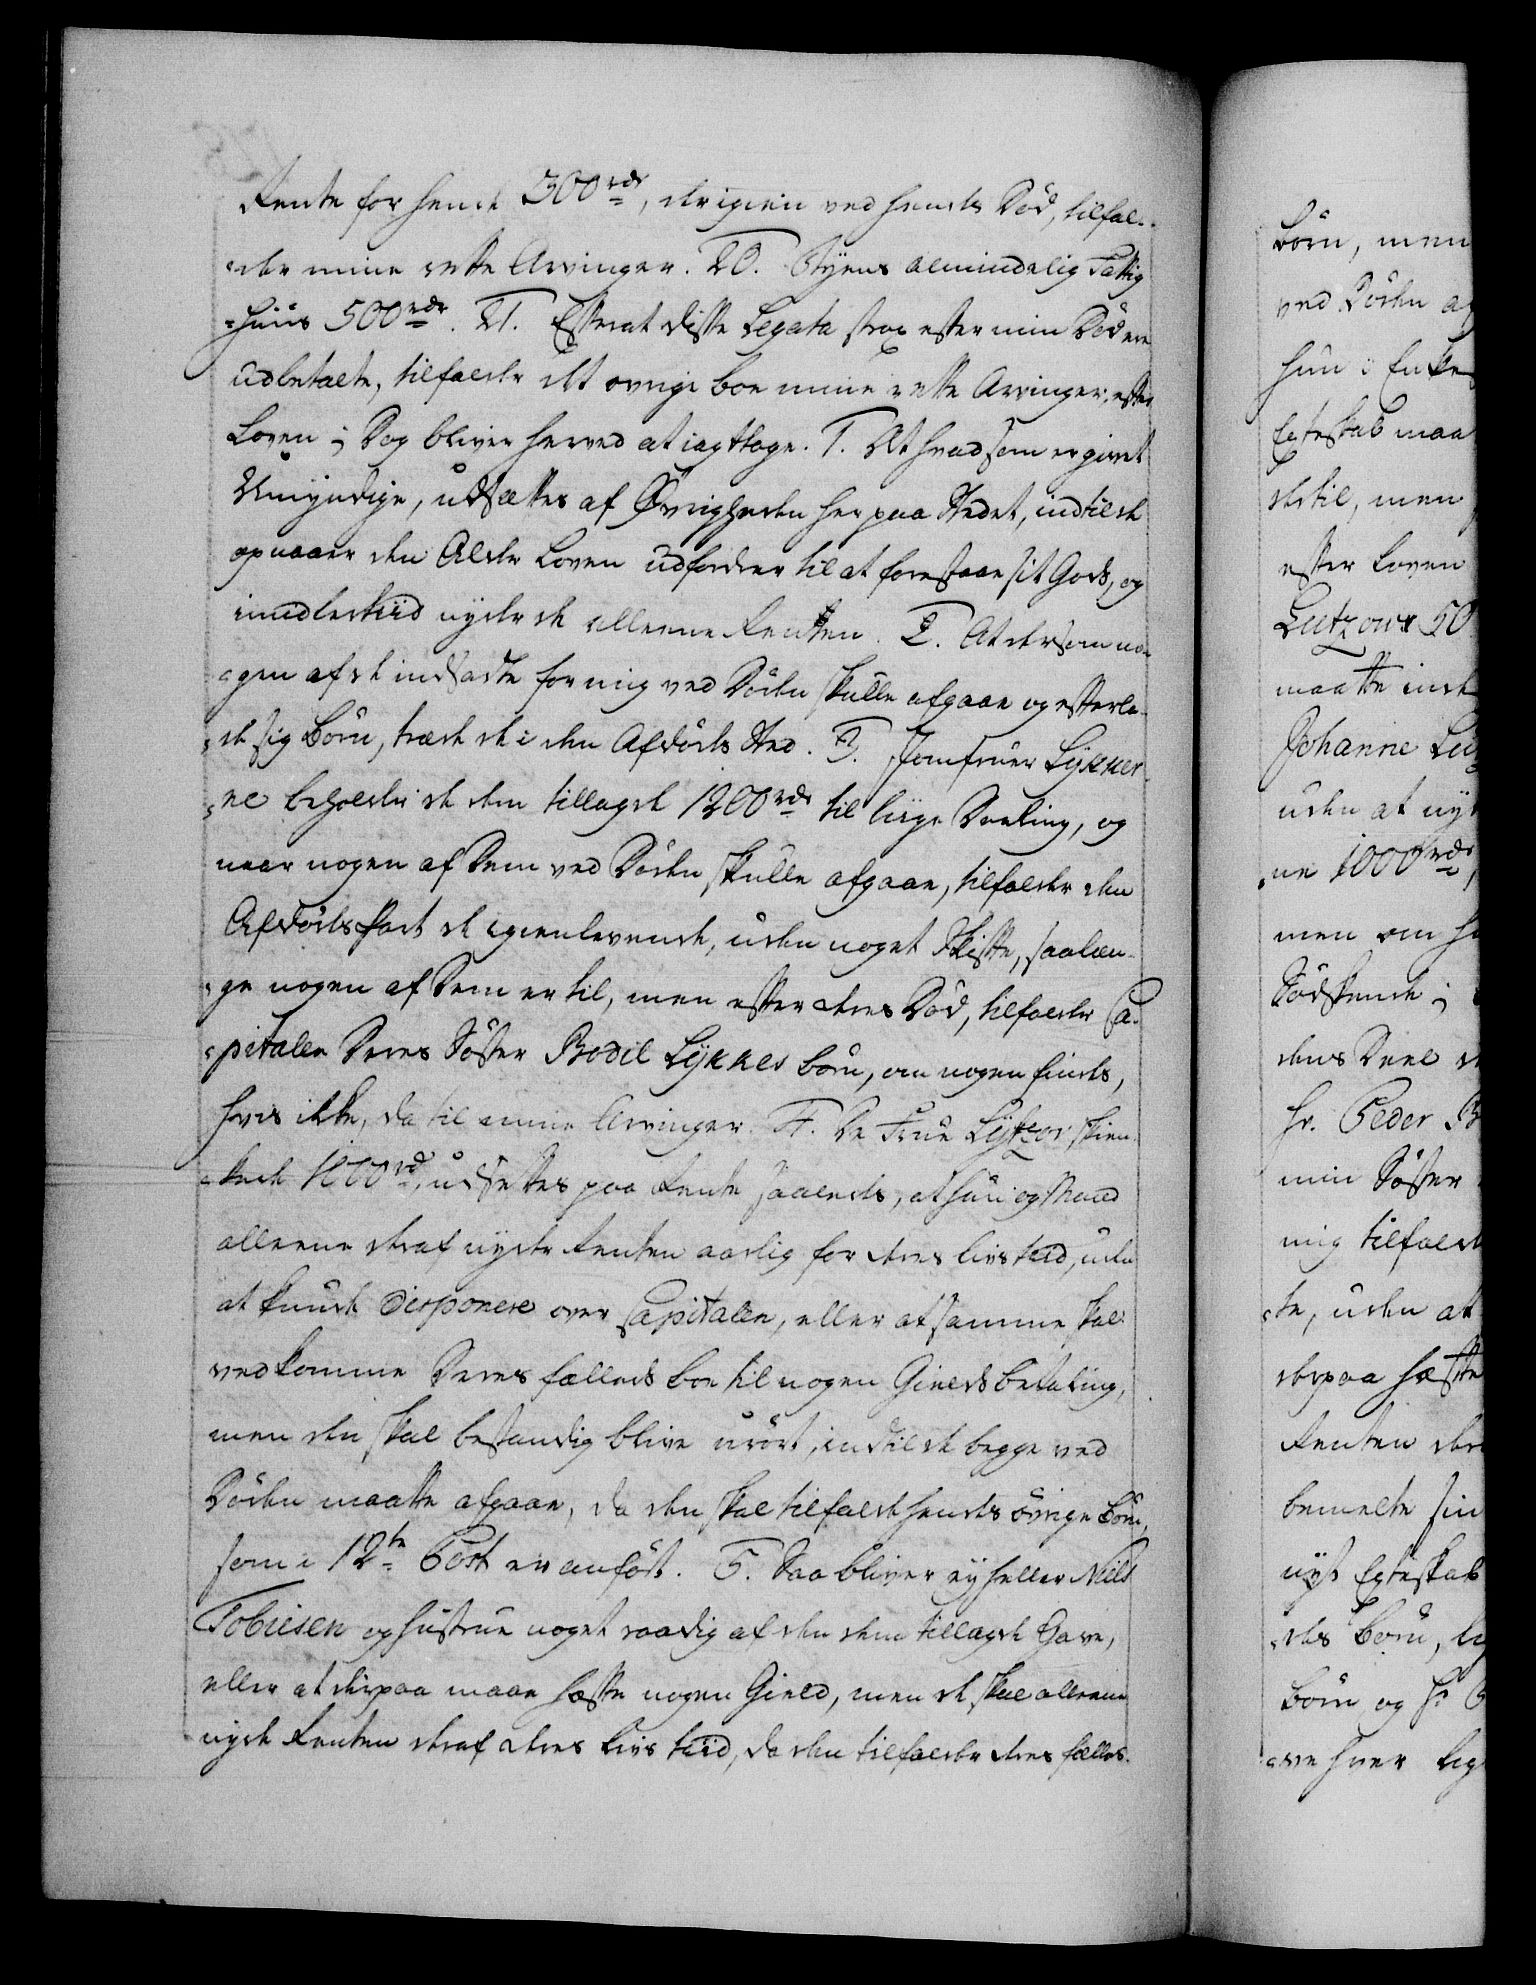 Rente for hende 300 rdr, der igien ved hendes Död, tilfal-
-der mine rette Arvinger. 20. Byens almindelig Fattig
-huus 500 rdr. 21. Efterat disse Legata strax efter min Död ere
udbetalte, tilfalder det övrige boe mine rette Arvinger, efter
Loven; Dog bliver herved at iagttage. 1. At hvad som er givet
Umyndige, udsættes af Øvrigheden her paa Stedet, indtil de
opnaaer den Alder Loven udfordrer til at forestaae sit Gods, og
imidlertiid nyder de alleene Renten. 2. At dersom no-
-gen af de indsadte for mig ved Döden skulle afgaae og efterla-
-de sig Börn, træde de i den Afdödes Sted. 3. Jomfruer Lykker-
-ne beholder de dem tillagde 1200 rdr til liige Deeling, og
naar nogen af Dem ved Döden skulle afgaae, tilfalder den
Afdödes Part de igienlevende, uden noget Skifte, saalæn-
-ge nogen af Dem er til, men efter deres Död, tilfalder Ca-
-pitalen Deres Söster Bodil Lykkes Börn, om nogen findes,
hvis ikke, da til mine Arvinger. 4. De Frue Lytzov skien-
-kede rd, udsettes paa Rente saaledes, at hun og Mand
alleene deraf nyder Renten aarlig for deres livs tiid, uden
at kunde disponere over Capitalen, eller at samme skal
vedkomme Deres fælleds boe til nogen Gields betaling,
men den skal bestandig blive urört, indtil de begge ved
Döden maatte afgaae, da den skal tilfalde hendes övrige Börn,
som i 12te Post er anfört. 5. Saa bliver ey heller Niels
Tobiesen og hustrue noget raadig af den dem tillagde Gave,
eller at derpaa maae hæfte nogen Gield, men de skal alleene
nyde Renten deraf deres livs tiid, da den tilfalder deres fælles
Börn, men
ved Döden af
hun i Enke
Egteskab maa
dertil, men
efter Loven
Lutzows 50
maatte
Johanne
uden at
-ne 1000 rdr,
men om
Södskende;
deres Deel
hr. Peder
min Söster
mig tilfalde
-te, uden at
derpaa hæfte
Renten
bemelte
nyt Egteskab
-des Börn,
Börn og hr
-ve hver